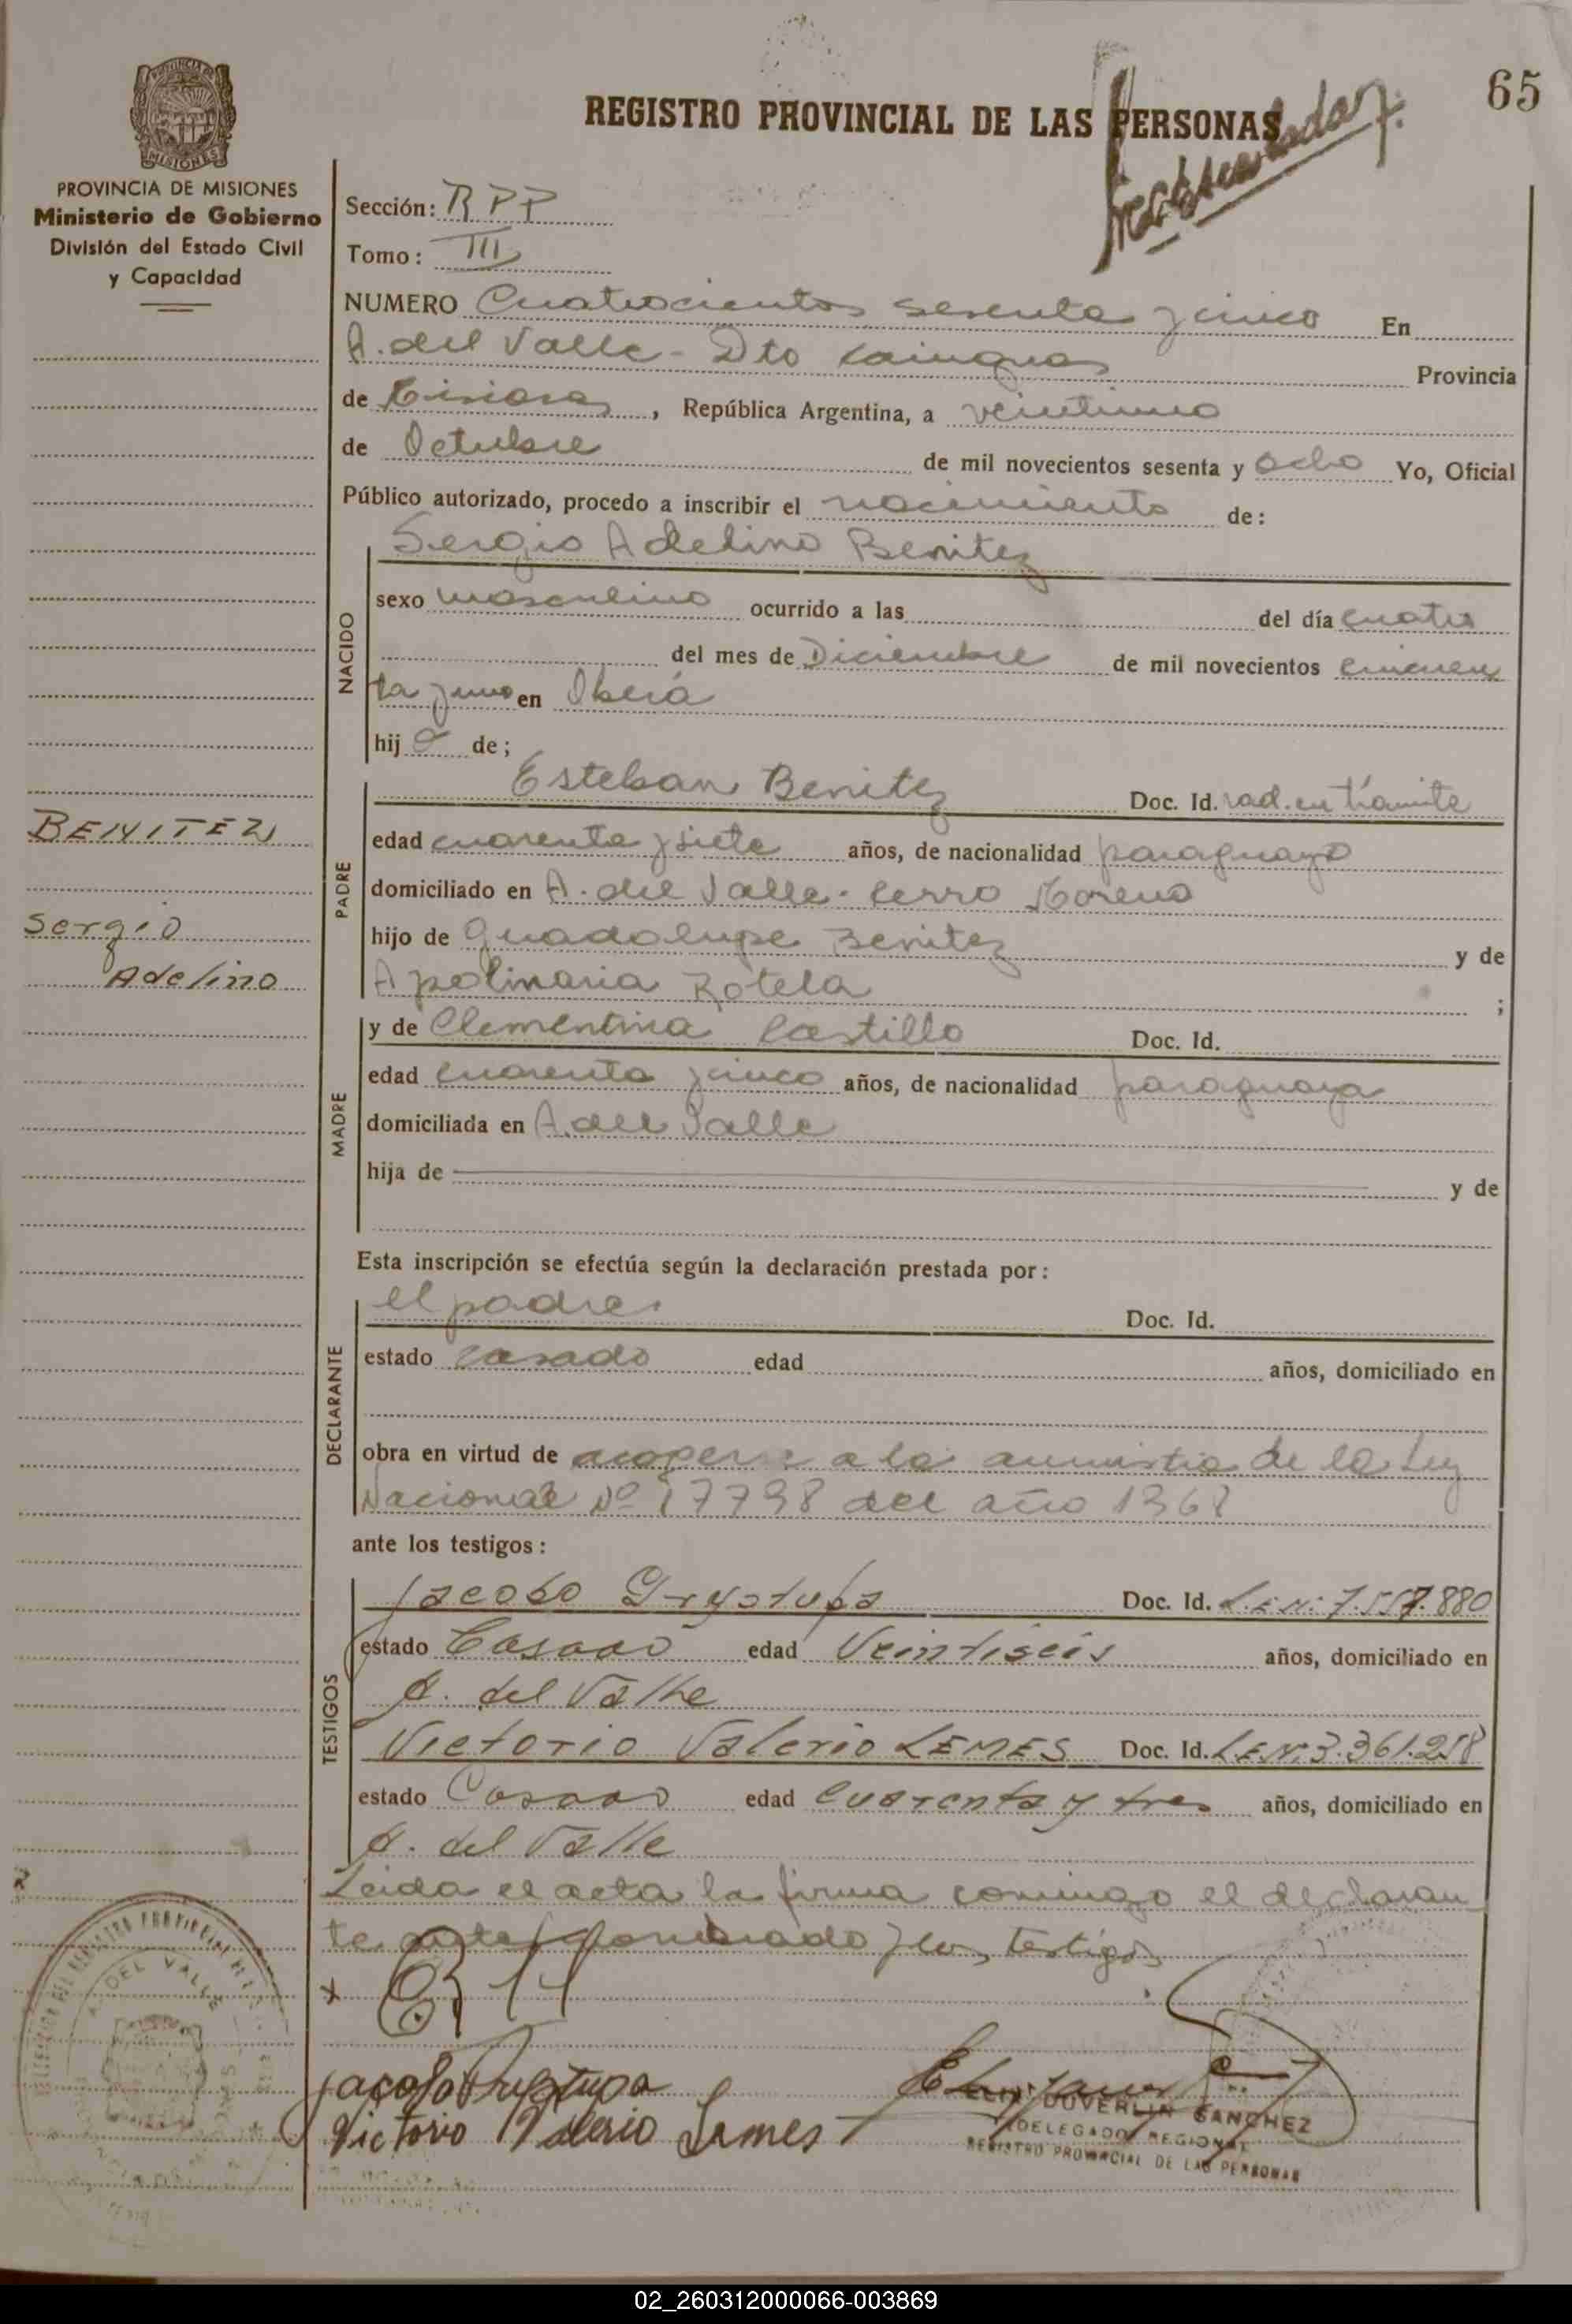 65
REGISTRO PROVINCIAL DE LAS PERSONAS
PROVINCIA DE MISIONES
Ministerio de Gobierno
División del Estado Civil
y Capacidad
Sección: R P P
Tomo: III
NUMERO Cuatrocientos sesenta y cinco En
A. del Valle - Dto Cainguas Provincia
de Misiones, República Argentina, a veintiuno
de Octubre de mil novecientos sesenta y ocho Yo, Oficial
Público autorizado, procedo a inscribir el nacimiento de:
NACIDO
Sergio Adelino Benitez
sexo masculino ocurrido a las del día cuatro
del mes de Diciembre de mil novecientos cincuen
ta y uno en Oberá
hij o de;
BENITEZ
Sergio
Adelino
PADRE
Esteban Benitez Doc. Id. rad. en trámite
edad cuarenta y siete años, de nacionalidad paraguayo
domiciliado en A. del Valle - Cerro Moreno
hijo de Guadalupe Benitez y de
Apolinaria Rotela ;
MADRE
y de Clementina Castillo Doc. Id.
edad cuarenta y cinco años, de nacionalidad paraguaya
domiciliada en A. del Valle
hija de y de
Esta inscripción se efectúa según la declaración prestada por:
DECLARANTE
el padre. Doc. Id.
estado casado edad años, domiciliado en
obra en virtud de acogerse a la amnistia de la Ley
Nacional Nº 17798 del año 1968
ante los testigos:
TESTIGOS
Jacobo Doc. Id. L.E.N: 7.557.880
estado Casado edad Veintiseis años, domiciliado en
A. del Valle
Victorio Valerio LEMES Doc. Id. L.E.N: 3.361.258
estado Casado edad Cuarenta y tres años, domiciliado en
A. del Valle
Leida el acta la firma conmigo el declaran
te ante nombrado y los testigos
x
Jacobo
Victorio Valerio Lemes
DUVERLIN SANCHEZ
DELEGADO REGIONAL
REGISTRO PROVINCIAL DE LAS PERSONAS
A. DEL VALLE
02_260312000066-003869